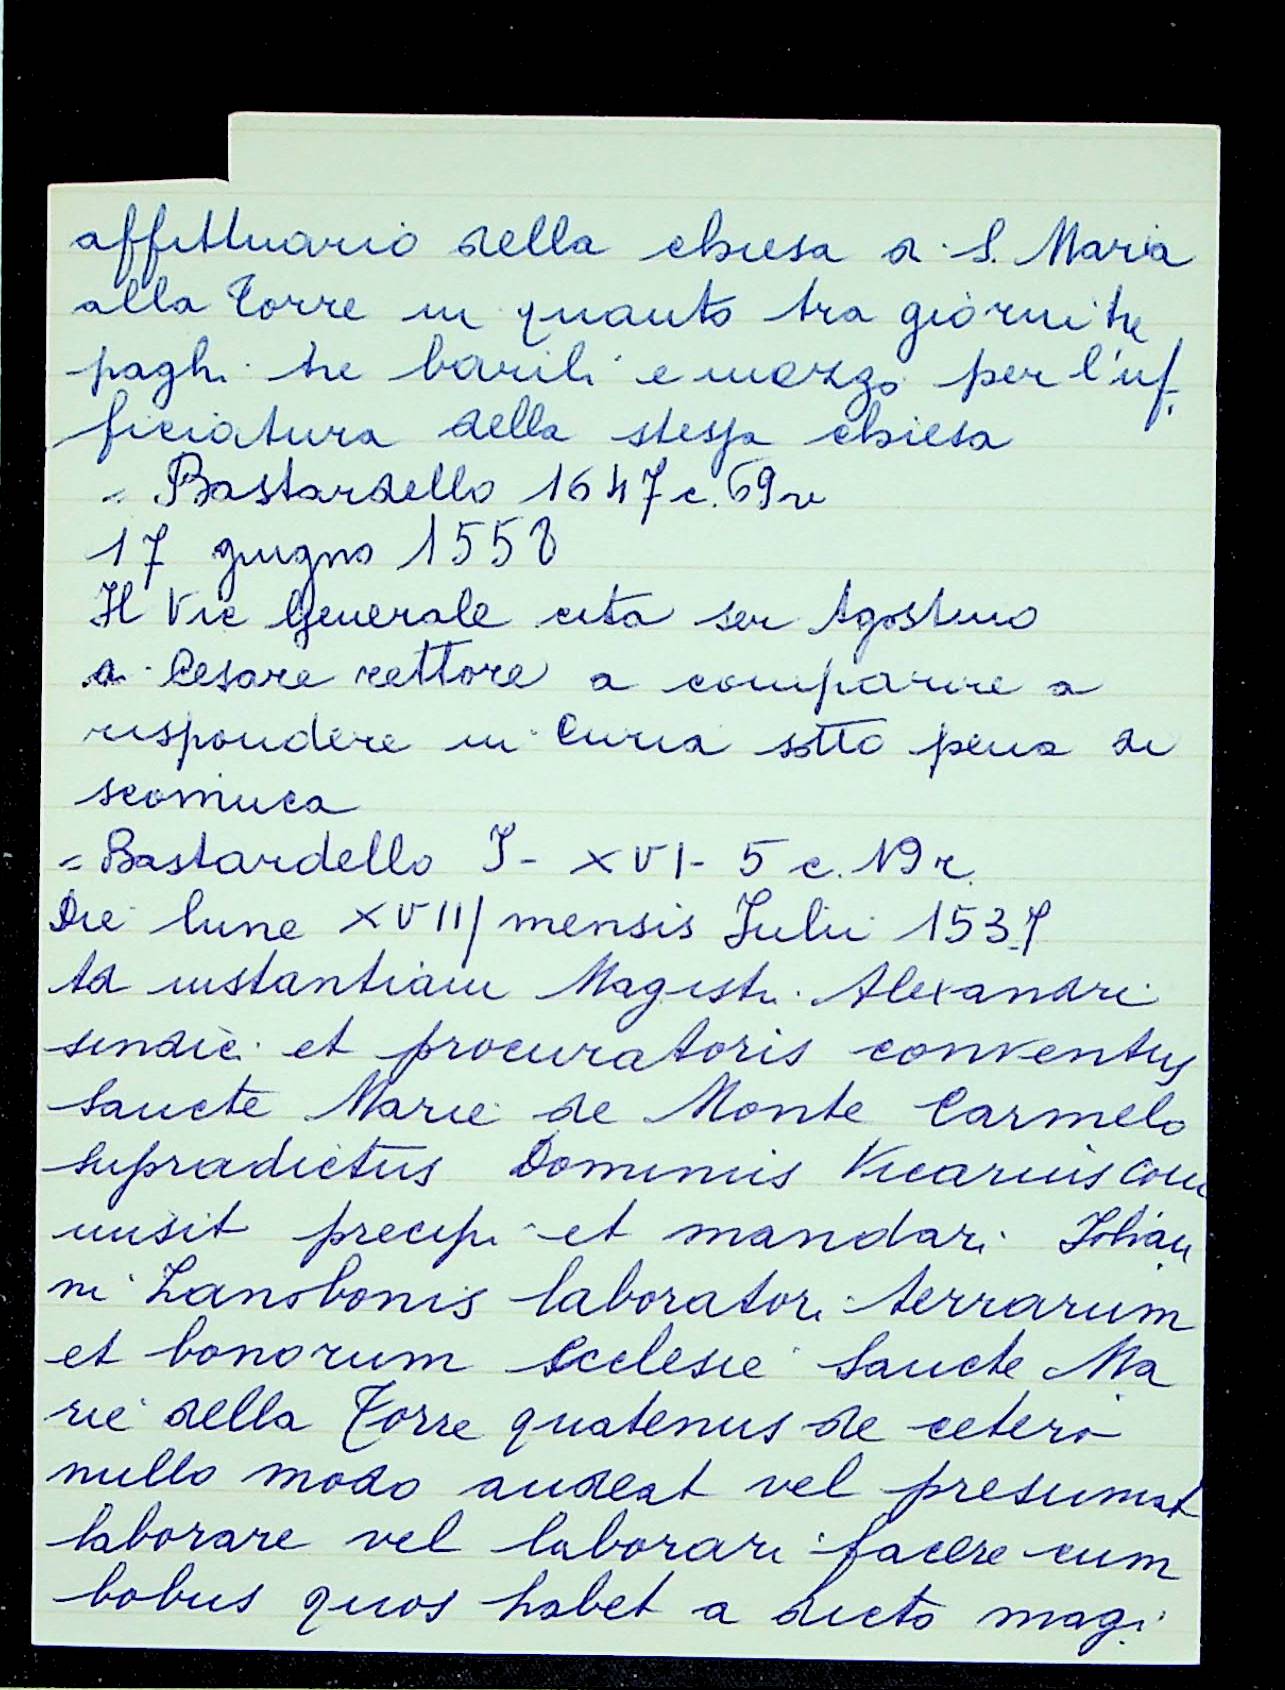 affittuario della chiesa di S. Maria
alla Torre in quanto tra giorni tre
paghi tre barili e mezzo per l'uf-
ficiatura della stessa chiesa
= Bastardello 1647 c. 69v
17 giugno 1558
Il Vic Generale cita ser Agostino
di Cesare rettore a comparire a
rispondere in Curia sotto pena di
scomunica
= Bastardello I - XVI - 5 c. 19r.
Die lune XVII mensis Julii 1537
Ad instantiam Magistri Alexandri
sindici et procuratoris conventus
Sancte Marie de Monte Carmelo
supradictus Dominus Vicarius com
misit precipi et mandari Johan
ni Zanobonis laboratori terrarum
et bonorum Ecclesie Sancte Ma
rie della Torre quatenus de cetero
nullo modo audeat vel presumat
laborare vel laborari facere cum
bobus quos habet a dicto magi